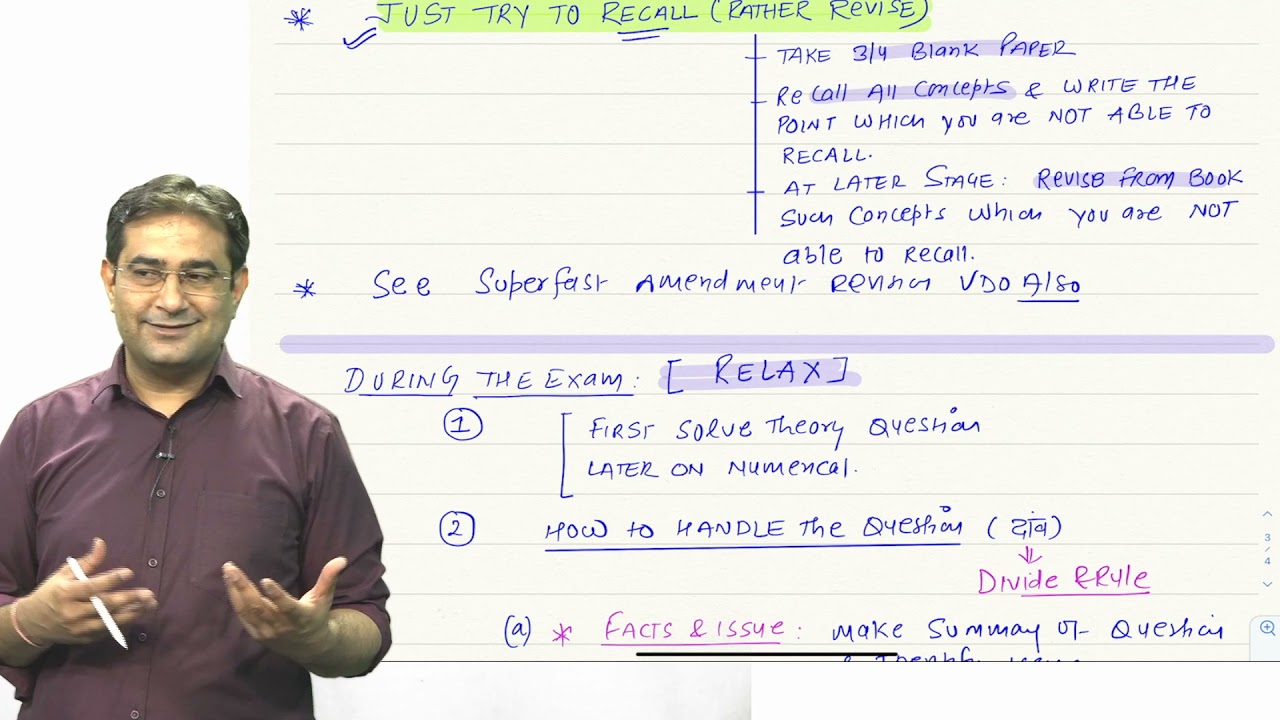 * JUST TRY TO RECALL (RATHER REVISE)
TAKE 3/4 Blank PAPER
Recall All Concepts & WRITE THE
POINT WHICH you are NOT ABLE TO
RECALL.
AT LATER STAGE: REVISE FROM BOOK
Such Concepts which you are NOT
able to recall.
* See Superfast Amendment Revision VDO Also
DURING THE EXAM: [RELAX]
1 FIRST Solve Theory Question
LATER ON Numerical.
2 HOW to HANDLE the Question (दांव)
Divide & Rule
(a) * FACTS & ISSUE: make Summary of Question
3
/
4